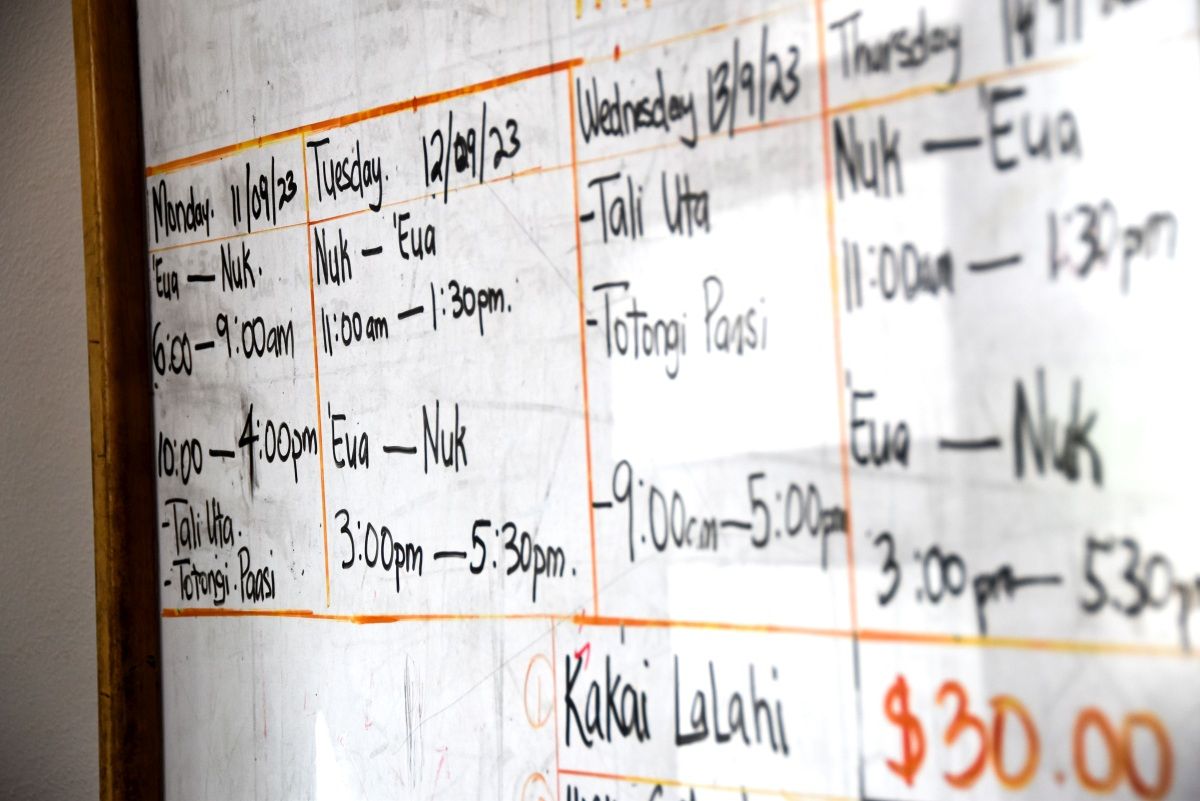 Monday. 11/09/23
'Eua — Nuk.
6:00 – 9:00am
10:00 – 4:00pm
-Tali Uta.
-Totongi Paasi
Tuesday. 12/09/23
Nuk – 'Eua
11:00am – 1:30pm.
'Eua — Nuk
3:00pm — 5:30pm.
Wednesday 13/9/23
-Tali Uta
-Totongi Paasi
-9:00am – 5:00pm
Thursday
Nuk — 'Eua
11:00am — 1:30pm
'Eua — Nuk
3:00pm — 530p
1
Kakai Lalahi
$30.00